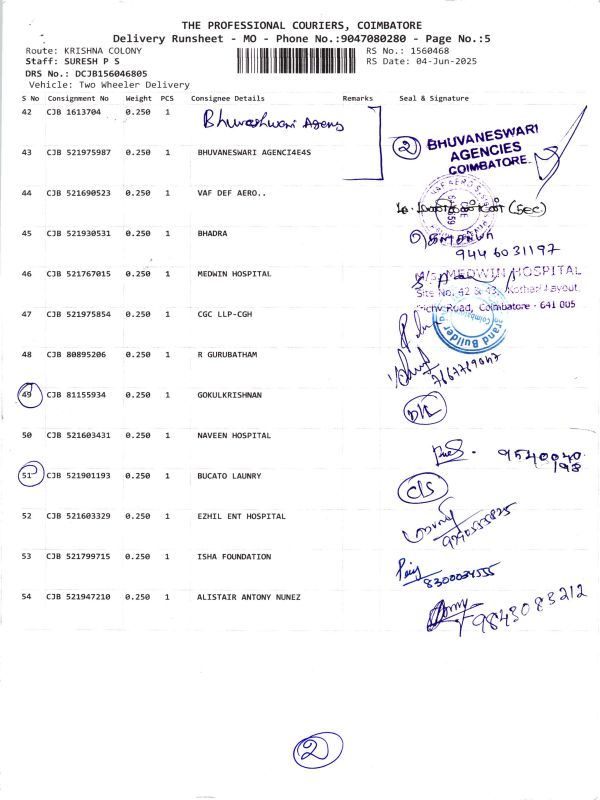 THE PROFESSIONAL COURIERS, COIMBATORE
Delivery Runsheet - MO - Phone No.:9047080280 - Page No.:5
Route: KRISHNA COLONY RS No.: 1560468
Staff: SURESH P S RS Date: 04-Jun-2025
DRS No.: DCJB156046805
Vehicle: Two Wheeler Delivery
S No Consignment No Weight PCS Consignee Details Remarks Seal & Signature
42 CJB 1613704 0.250 1 Bhuvaneshwari Agency
43 CJB 521975987 0.250 1 BHUVANESWARI AGENCI4E4S
2 BHUVANESWARI
AGENCIES
COIMBATORE.
44 CJB 521690523 0.250 1 VAF DEF AERO..
(SEC)
45 CJB 521930531 0.250 1 BHADRA
9446031197
46 CJB 521767015 0.250 1 MEDWIN HOSPITAL
M/s. MEDWIN HOSPITAL
Site No. 42 & 43, Kothari Layout
Trichy Road, Coimbatore - 641 005
47 CJB 521975854 0.250 1 CGC LLP-CGH
48 CJB 80895206 0.250 1 R GURUBATHAM
7667769047
49 CJB 81155934 0.250 1 GOKULKRISHNAN
50 CJB 521603431 0.250 1 NAVEEN HOSPITAL
9540040
198
51 CJB 521901193 0.250 1 BUCATO LAUNRY
C/S
52 CJB 521603329 0.250 1 EZHIL ENT HOSPITAL
53 CJB 521799715 0.250 1 ISHA FOUNDATION
8300034555
54 CJB 521947210 0.250 1 ALISTAIR ANTONY NUNEZ
9843083212
2